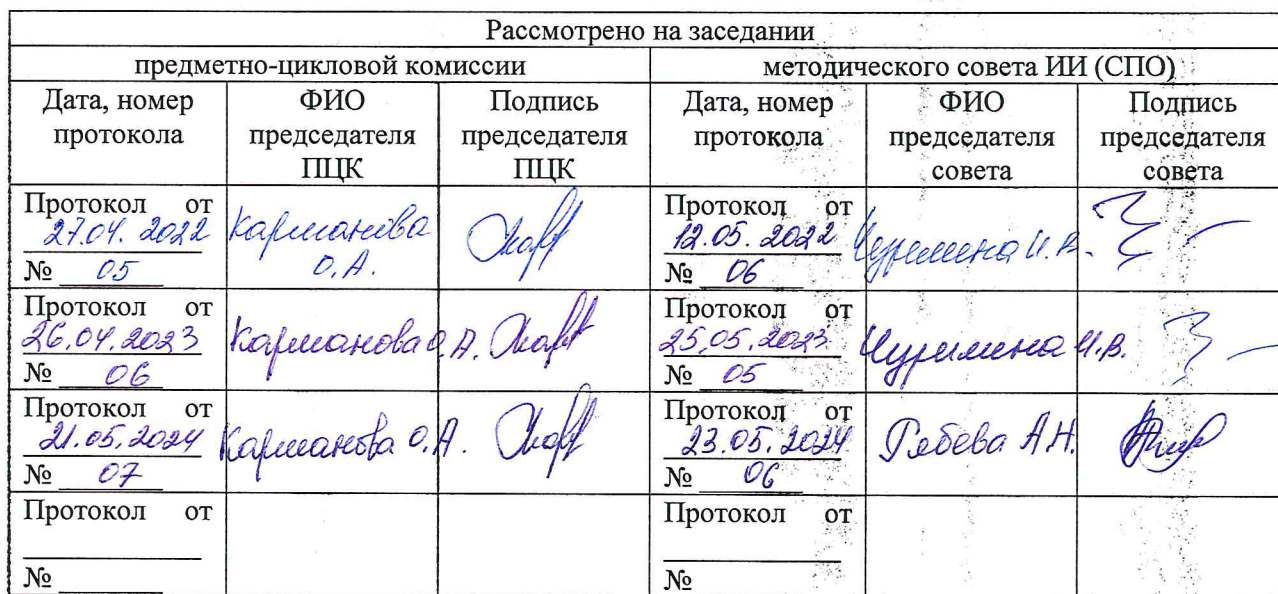 Рассмотрено на заседании
предметно-цикловой комиссии
методического совета ИИ (СПО)
Дата, номер протокола
ФИО председателя ПЦК
Подпись председателя ПЦК
Дата, номер протокола
ФИО председателя совета
Подпись председателя совета
Протокол от
27.04. 2022
№ 05
Карманова
О.А.
Протокол от
12.05. 2022
№ 06
И.В.
Протокол от
26.04.2023
№ 06
Карманова О.А.
Протокол от
25.05.2023
№ 05
И.В.
Протокол от
21.05.2024
№ 07
Карманова О.А
Протокол от
23.05.2024
№ 06
А.Н.
Протокол от
№
Протокол от
№